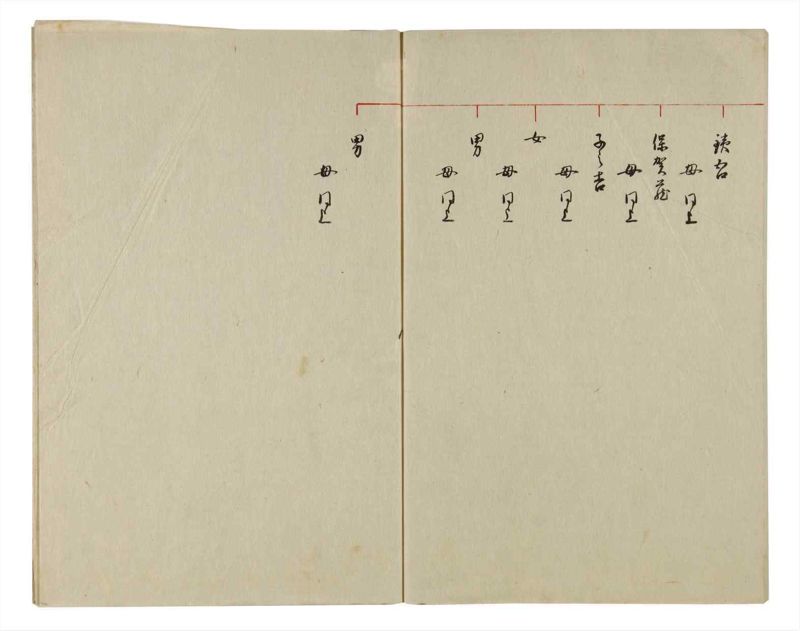 母同上
保賀蔵
母同上
子之吉
母同上
女
母同上
男
母同上
男
母同上